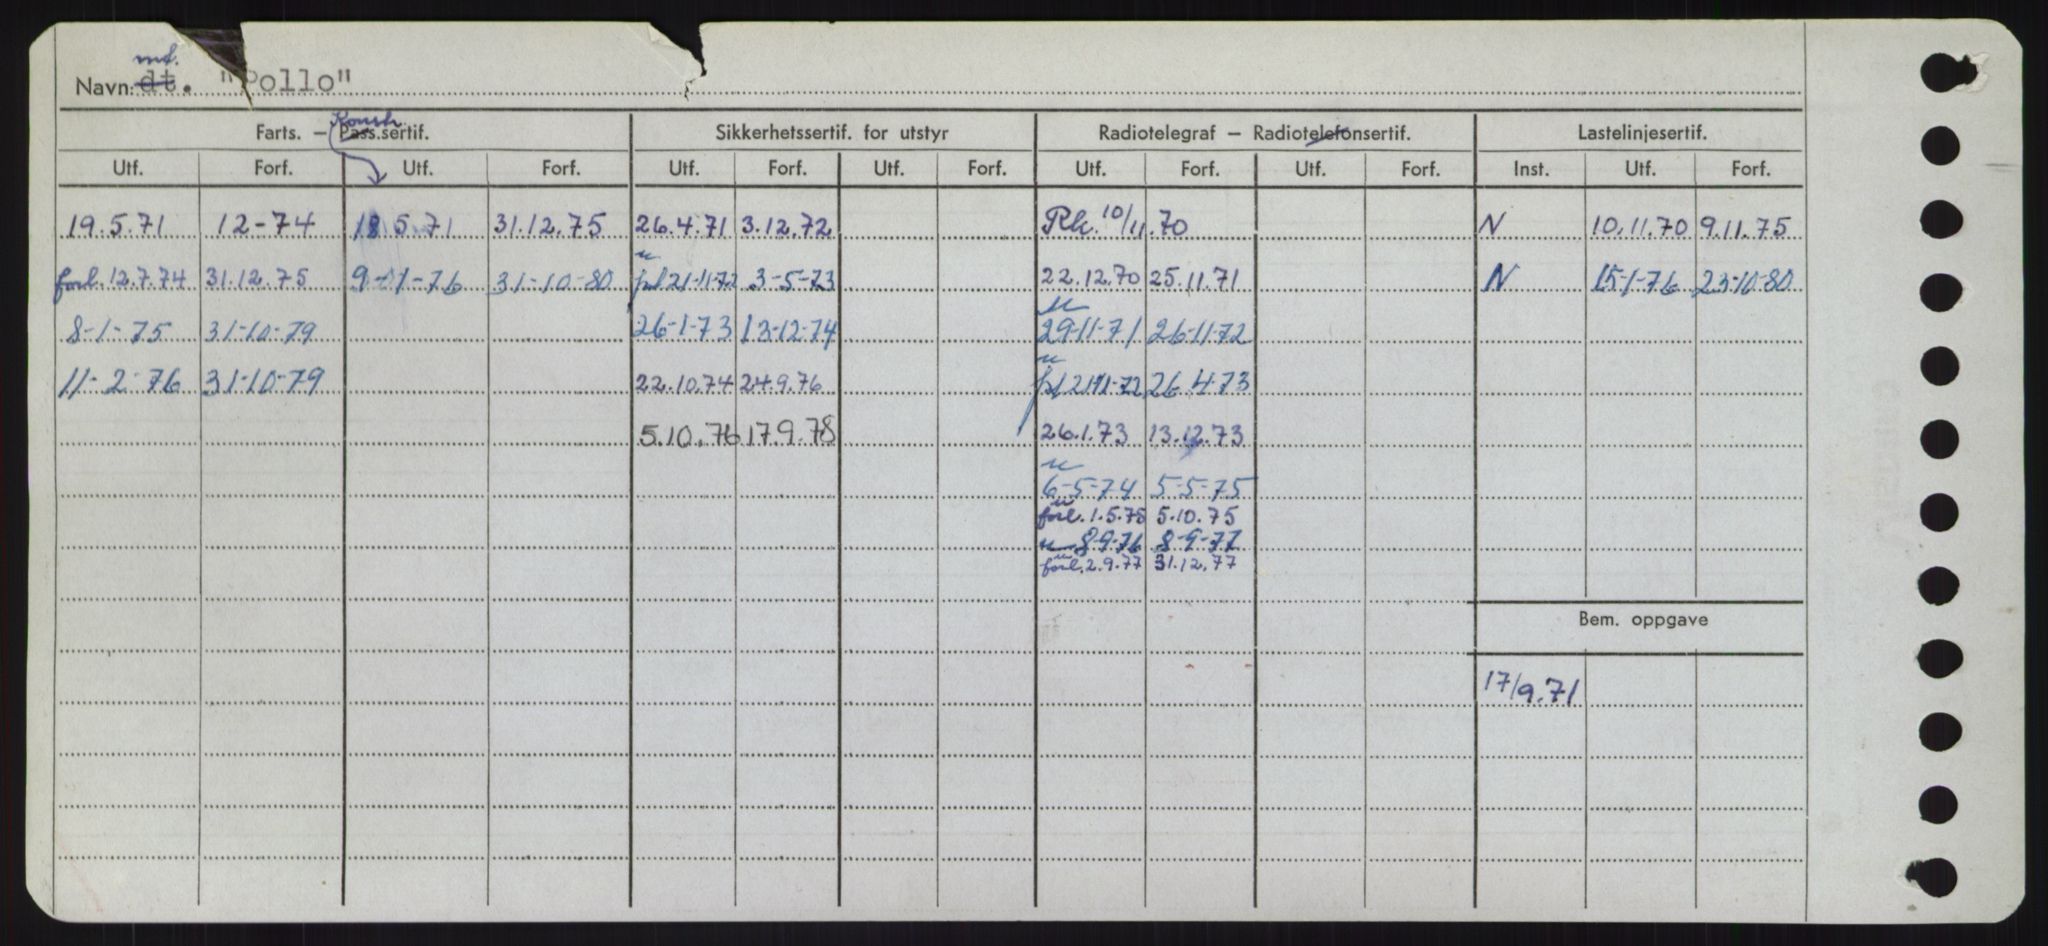 mt.
Navn: dt. "Pollo"
Konstr.
Farts. — Pass.sertif. Sikkerhetssertif. for utstyr Radiotelegraf — Radiotelefonsertif. Lastelinjesertif.
Utf. Forf. Utf. Forf. Utf. Forf. Utf. Forf. Utf. Forf. Utf. Forf. Inst. Utf. Forf.
19.5.71 12-74 18 5.71 31.12.75 26.4.71 3.12.72 Rk. 10/11.70 N 10.11.70 9.11.75
u
forl. 12.7.74 31.12.75 9-1-76 31-10-80 21-11-72 3-5-73 22.12.70 25.11.71 N 15-1-76 23-10-80
u
8-1-75 31-10-79 26-1-73 13-12-74 29-11-71 26-11-72
u
11-2-76 31-10-79 22.10.74 24.9.76 21-11-72 26-4-73
5.10.76 17.9.78 26.1.73 13.12.73
u
6-5-74 5-5-75
u
forl. 1.5.75 5.10.75
u 8-9-76 8-9-77
u
forl. 2.9.77 31.12.77
Bem. oppgave
17/9.71